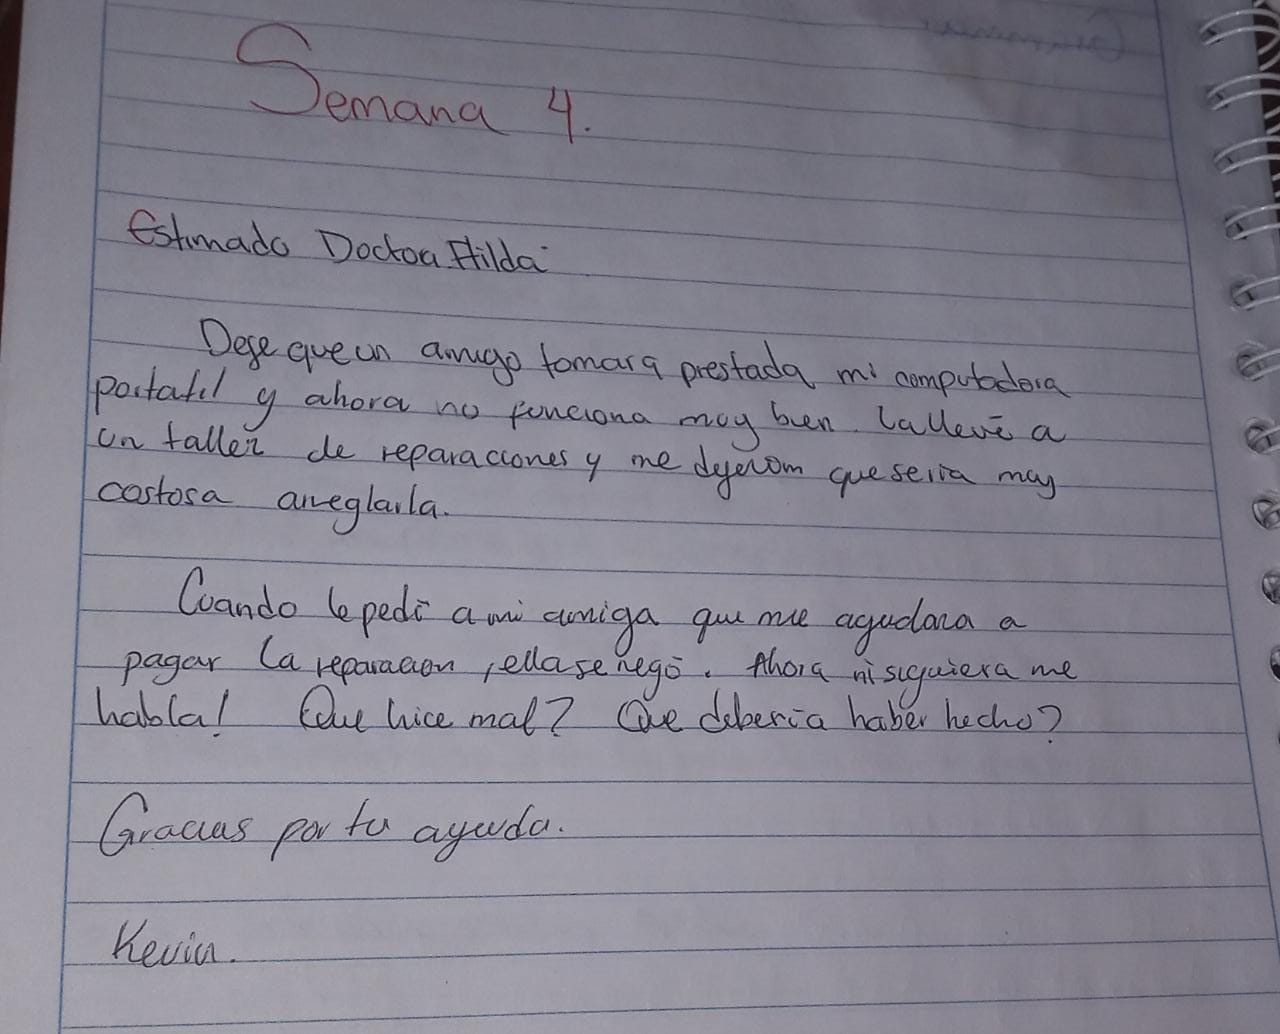 Semana 4.
Estimado Doctoa Hilda
Dege que un amigo tomara prestada mi computadora
portatil y ahora no funciona muy bien. la llevé a
un taller de reparaciones y me dijerom que seria muy
costosa arreglarla.
Cuando le pedí a mi amiga que me ayudara a
pagar la reparacion, ella se negó. Ahora ni siquiera me
habla! Que hice mal? Que deberia haber hecho?
Gracias por tu ayuda.
Kevin.